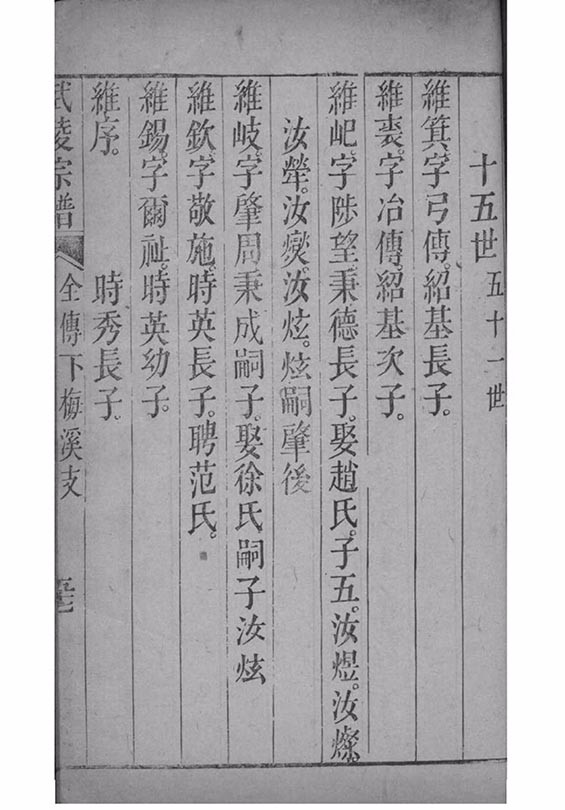 十五世 五十一世
維箕。字弓傳。紹基長子。
維裘。字冶傳。紹基次子。
維屺。字陟望。秉德長子。娶趙氏。子五。汝煜。汝燦。
汝犖。汝爕。汝炫。炫嗣肇後
維岐。字肇周秉成嗣子。娶徐氏嗣子汝炫
維欽。字敬施。時英長子。聘范氏。
維錫。字爾祉。時英幼子。
維序。 時秀長子。
武陵宗譜 全傳下梅溪支